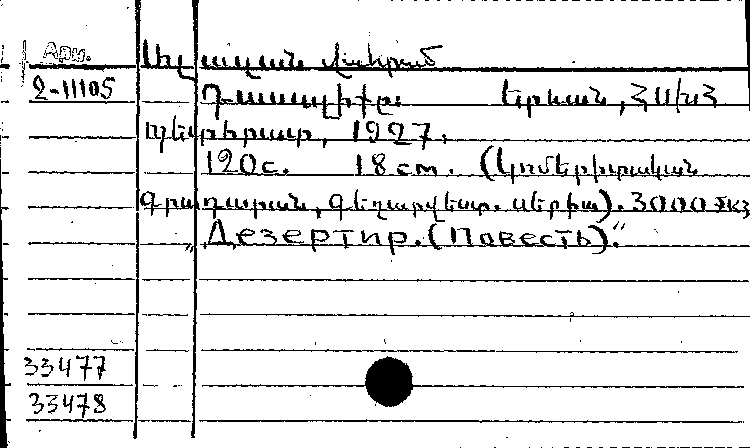 Арм.
Ալազան Վահրամ
2-11105 Դասալիքը. Երևան, ՀՍԽՀ
պետհրատ, 1927.
120с. 18 cm. (Կոմերիտական
գրադարան, գեղարվեստ. սերիա). 3000 экз
„Дезертир. (Повесть).“
33477
33478